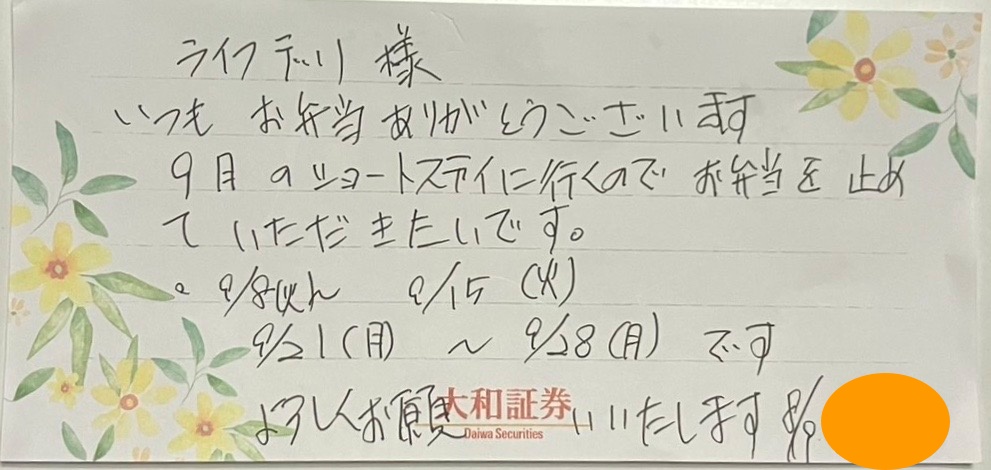 ライフデリ 様
いつも お弁当ありがとうございます
9月のショートステイに行くので お弁当を 止め
ていただきたいです。
。9/8(火)〜 9/15 (火)
9/21(月) 〜 9/28(月) です
よろしくお願いいたします 8/9
大和証券
Daiwa Securities